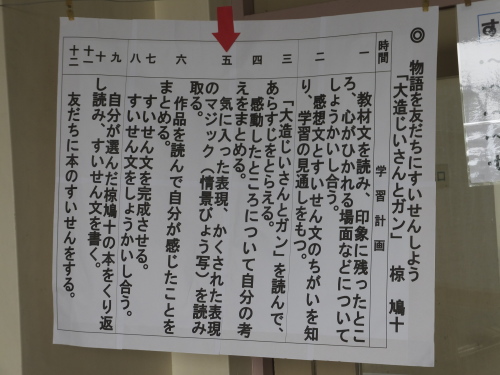 ◎ 物語を友だちにすいせんしよう
「大造じいさんとガン」 椋 鳩十
時間 学習計画
一 教材文を読み、印象に残ったとこ
ろ、心がひかれる場面などについて
しょうかいし合う。
二 感想文とすいせん文のちがいを知
り、学習の見通しをもつ。
三 「大造じいさんとガン」を読んで、
あらすじをとらえる。
四 感動したところについて自分の考
えをまとめる。
五 気に入った表現、かくされた表現
のマジック（情景びょう写）を読み
取る。
六 作品を読んで自分が感じたことを
まとめる。
七 すいせん文を完成させる。
八 すいせん文をしょうかいし合う。
九 自分が選んだ椋鳩十の本をくり返
十 し読み、すいせん文を書く。
十一
十二 友だちに本のすいせんをする。
す